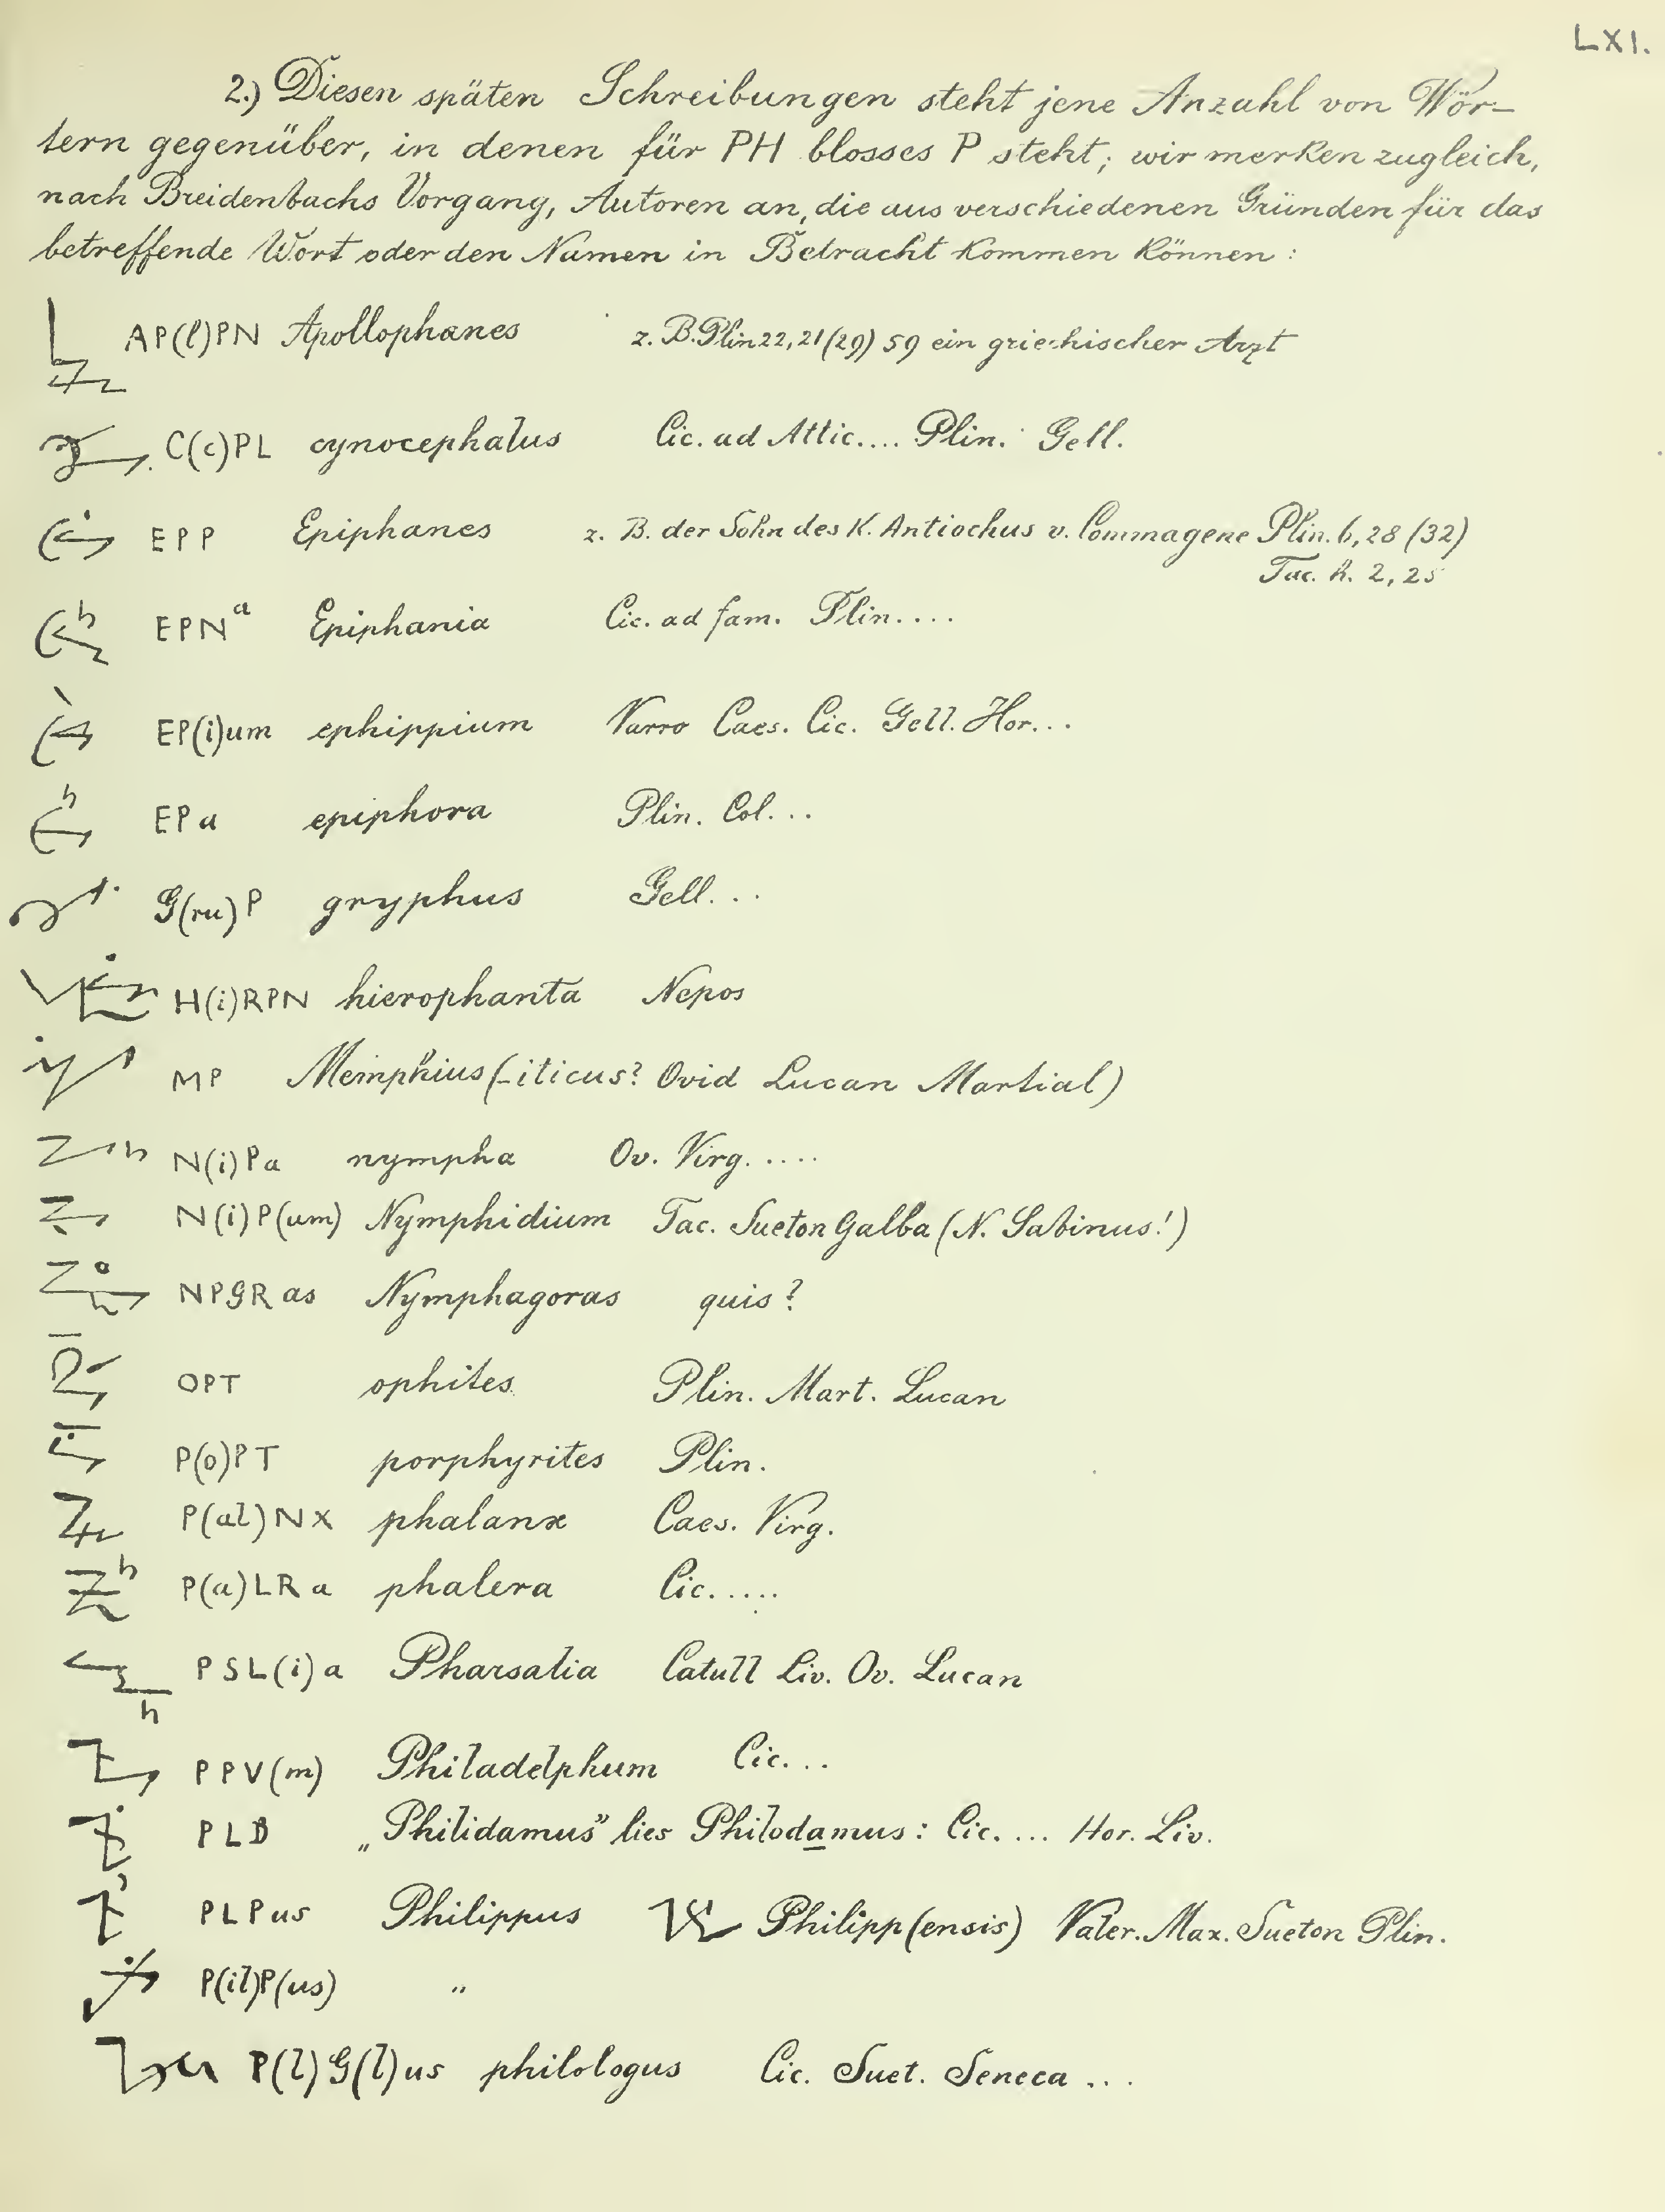 LXI.
2.) Diesen späten Schreibungen steht jene Anzahl von Wör-
tern gegenüber, in denen für PH blosses P steht; wir merken zugleich,
nach Breidenbachs Vorgang, Autoren an, die aus verschiedenen Gründen für das
betreffende Wort oder den Namen in Betracht kommen können:
AP(l)PN Apollophanes z. B. Plin 22, 21 (29) 59 ein griechischer Arzt
C(c)PL cynocephalus Cic. ad Attic.... Plin. Gell.
EPP Epiphanes z. B. der Sohn des K. Antiochus v. Commagene Plin. 6, 28 (32)
Tac. h. 2, 25
EPNa Epiphania Cic. ad fam. Plin....
EP(i)um ephippium Varro Caes. Cic. Gell. Hor...
EPa epiphora Plin. Col...
G(ru)P gryphus Gell...
H(i)RPN hierophanta Nepos
MP Memphius (-iticus? Ovid Lucan Martial)
N(i)Pa nympha Ov. Virg.....
N(i)P(um) Nymphidium Tac. Sueton Galba (N. Sabinus!)
NPGRas Nymphagoras quis?
OPT ophites Plin. Mart. Lucan
P(o)PT porphyrites Plin.
P(al)NX phalanx Caes. Virg.
P(a)LRa phalera Cic.....
PSL(i)a Pharsalia Catull Liv. Ov. Lucan
PPV(m) Philadelphum Cic...
PLD „Philidamus” lies Philodamus: Cic.... Hor. Liv.
PLPus Philippus Philipp(ensis) Valer. Max. Sueton Plin.
P(il)P(us) „
P(l)G(l)us philologus Cic. Suet. Seneca...